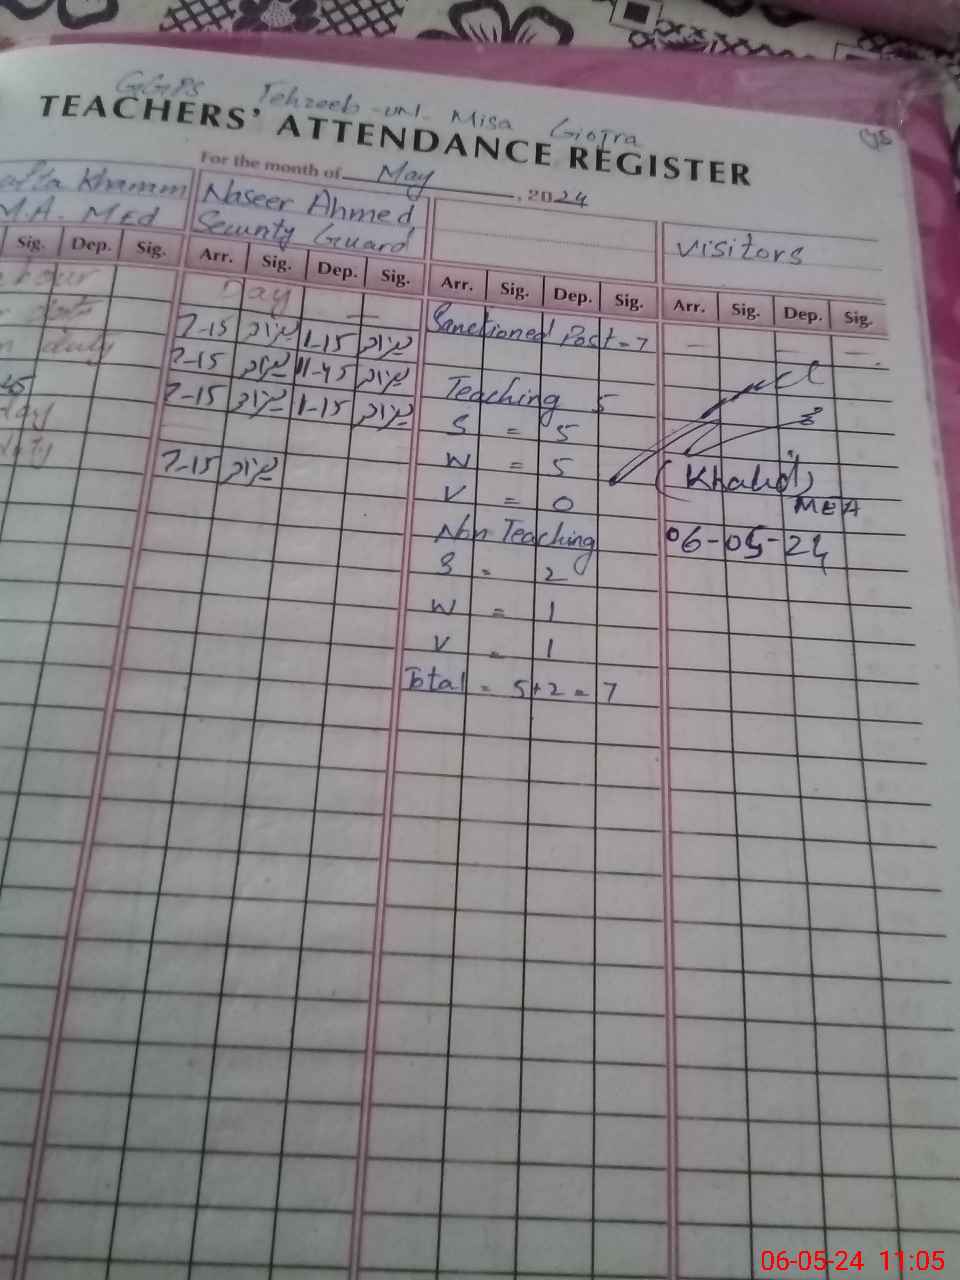 GGPS Tehzeeb-ul-Misa Giotra
TEACHERS' ATTENDANCE REGISTER
For the month of May, 2024
Khanam
M.A. MEd
Sig. Dep. Sig.
duty
45
day
duty
Naseer Ahmed
Security Guard
Arr. Sig. Dep. Sig.
Day
7-15 1-15
7-15 11-45
7-15 1-15
7-15
Arr. Sig. Dep. Sig.
Sanctioned Post = 7
Teaching 5
S = 5
W = 5
V = 0
Non Teaching
S = 2
W = 1
V = 1
Total = 5+2 = 7
visitors
Arr. Sig. Dep. Sig.
(Khalid)
MEA
06-05-24
06-05-24 11:05